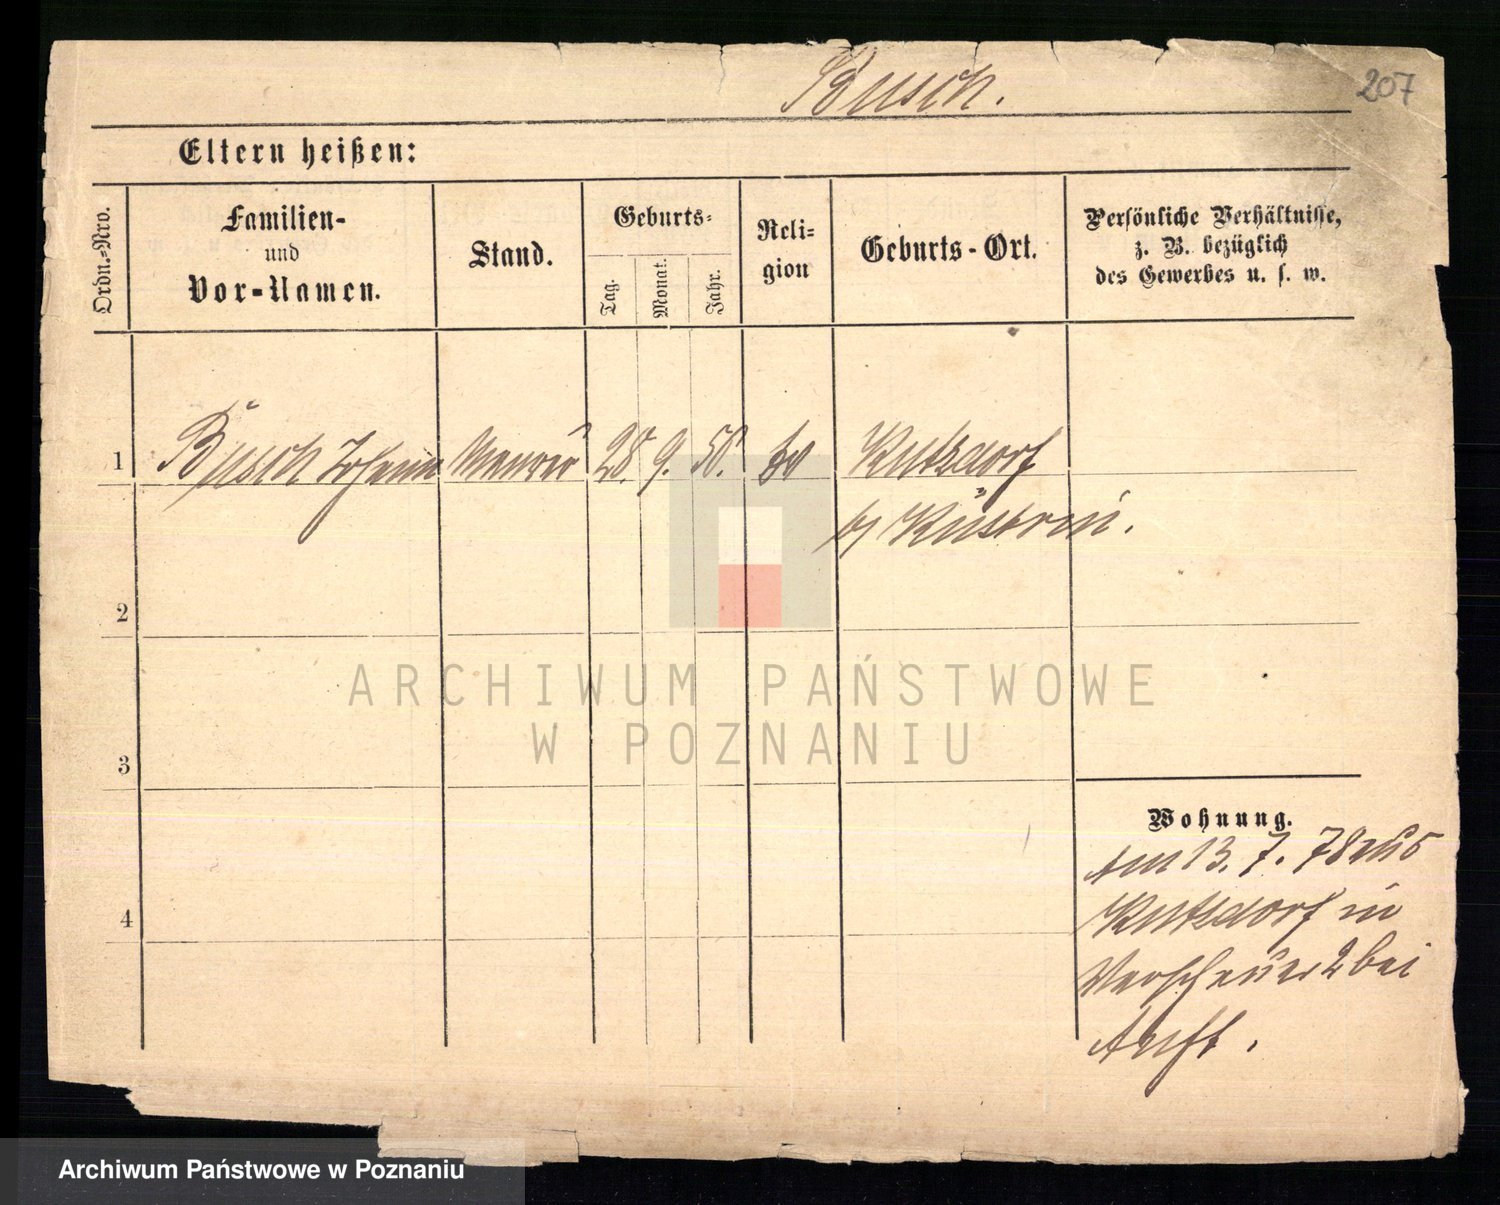 Busch.
207
Eltern heißen:
Ordn.-Nro.
Familien-
und
Vor-Namen.
Stand.
Geburts-
Tag.
Monat.
Jahr.
Reli-
gion
Geburts-Ort.
Persönliche Verhältnisse,
z. B. bezüglich
des Gewerbes u. s. w.
1 Busch Johann Maurer 28. 9. 58. ev Kutzdorf
b/ Küstrin.
2
3
4
Wohnung.
Am 13. 7. 78 aus
Kutzdorf in
2 bei
ARCHIWUM PAŃSTWOWE
W POZNANIU
Archiwum Państwowe w Poznaniu